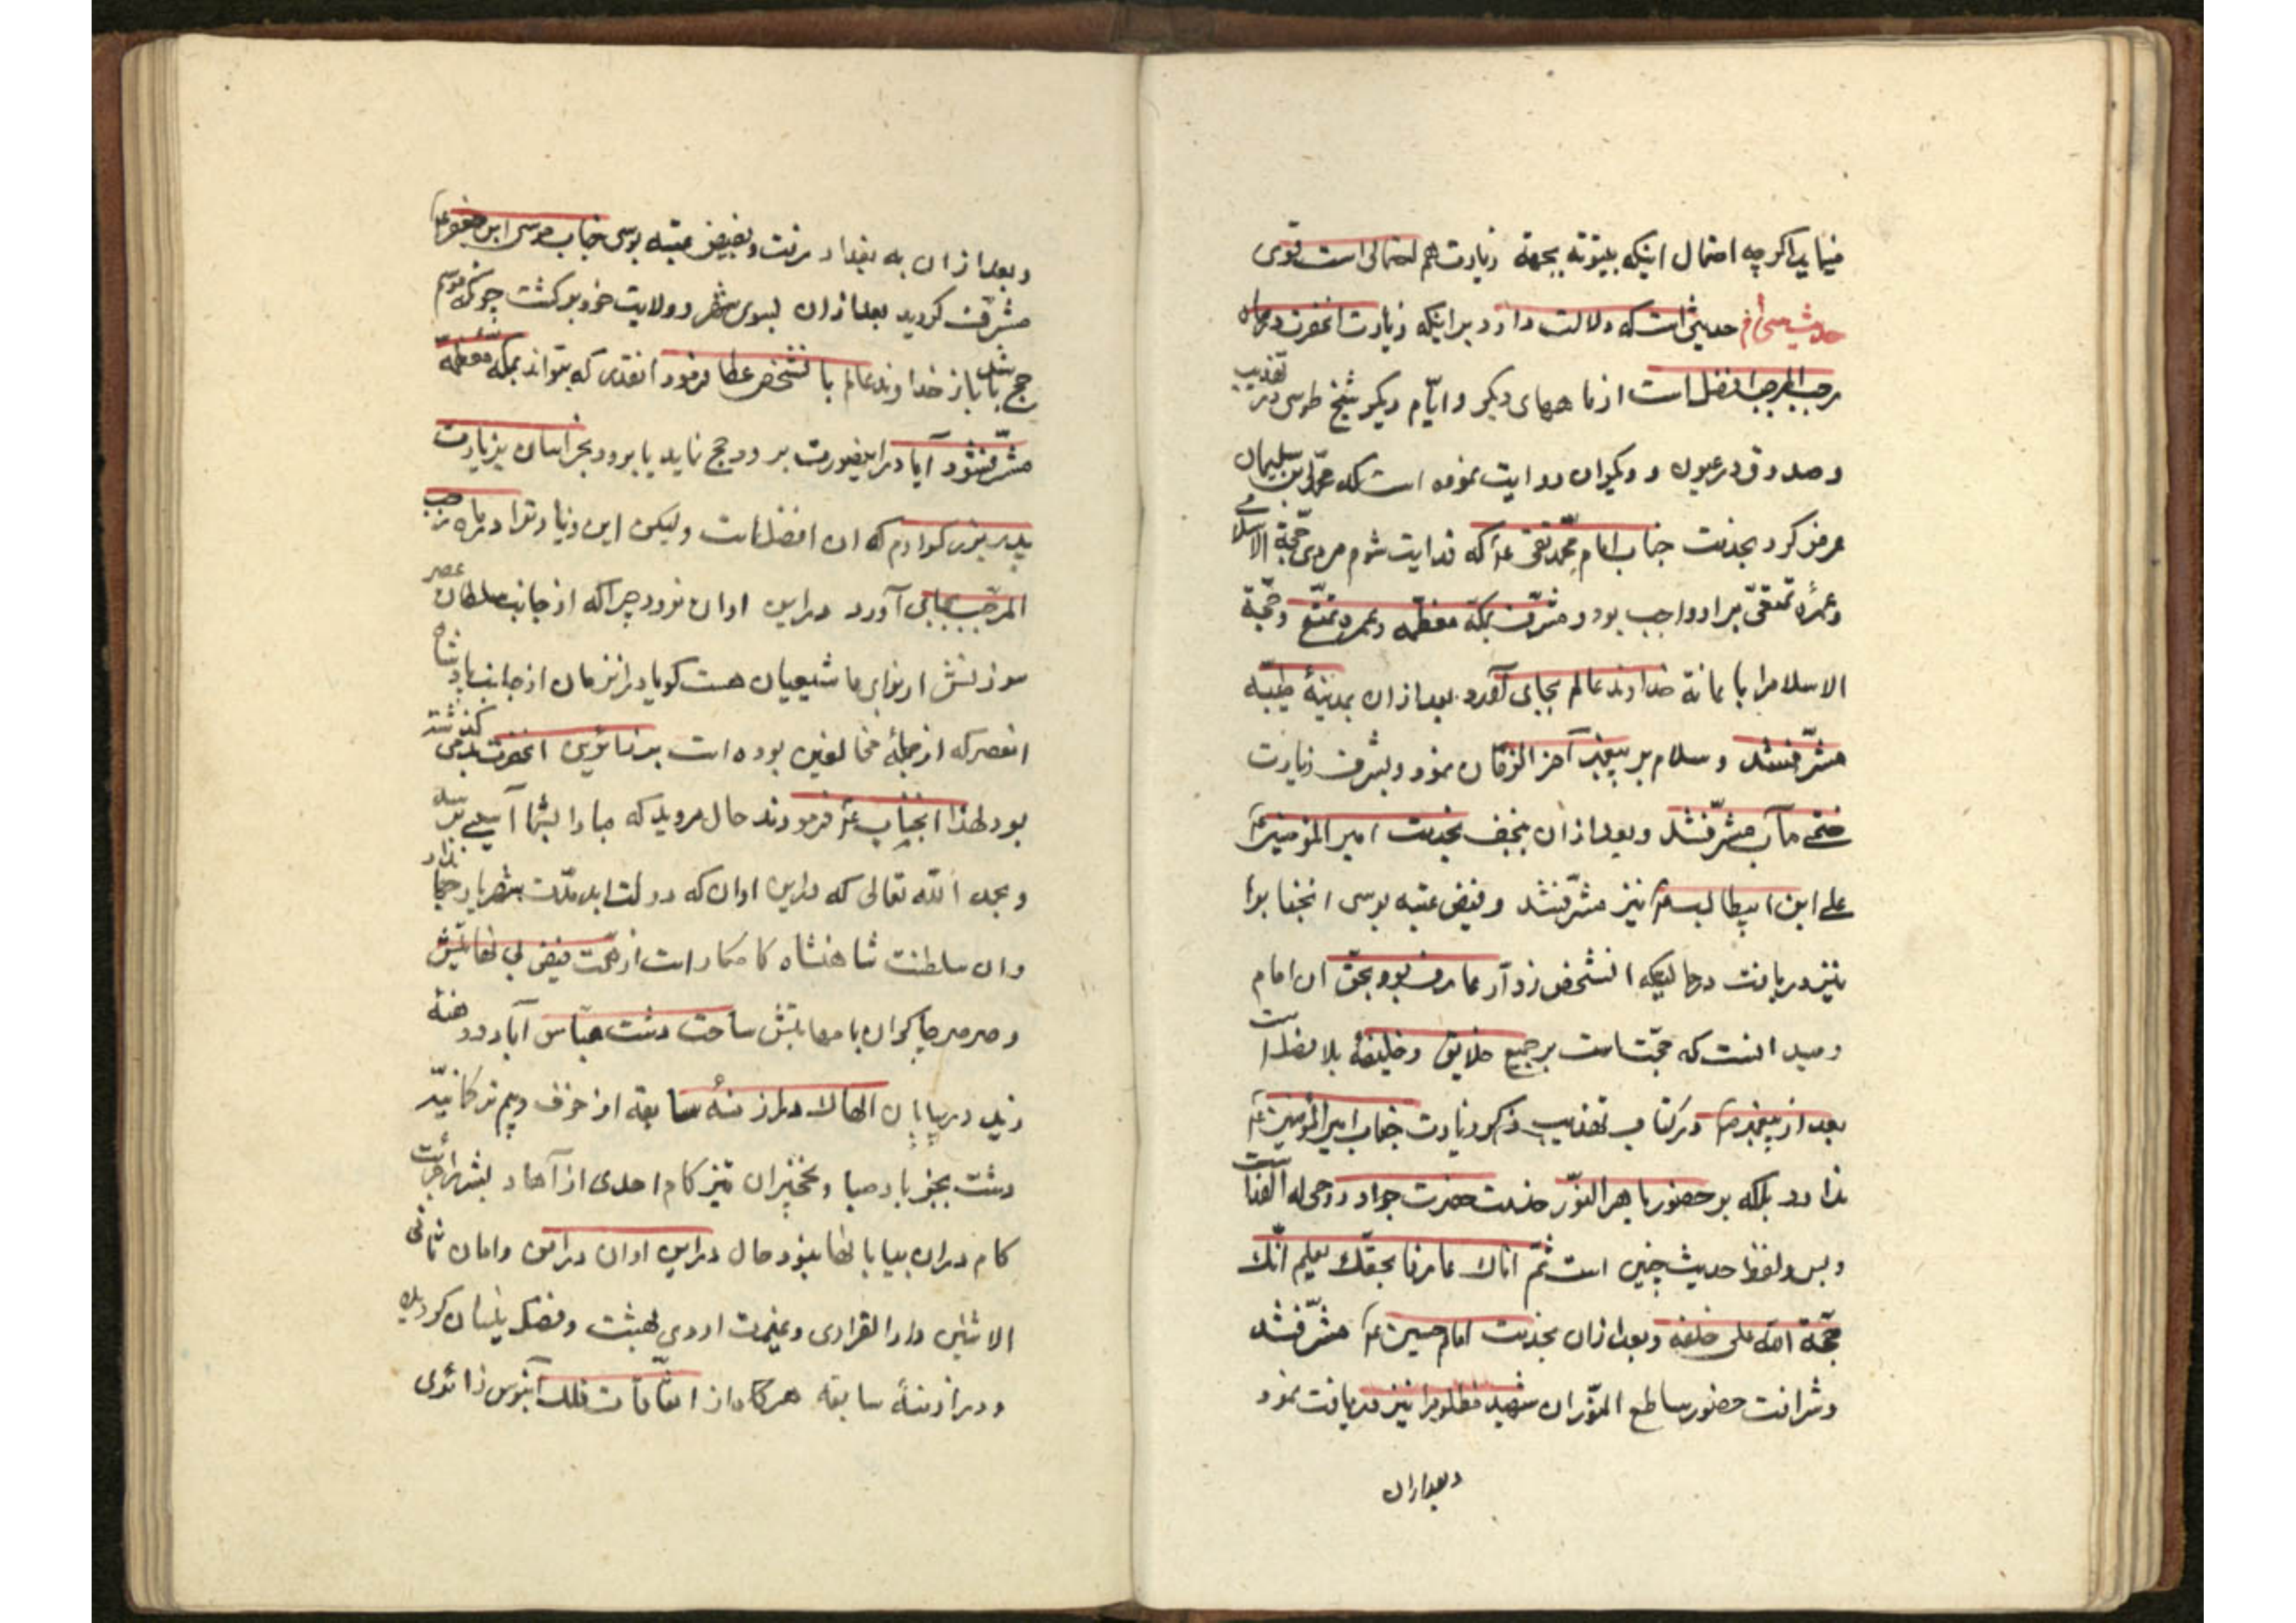 میاید اکرچه احتمال اینکه بیتوته بجهة زیارت هم احتمالی است قوی
حدیث سی‌ام حدیثی است که دلالت دارد بر اینکه زیارت انحضرت در ماه
رجب المرجب افضل است از ماههای دیکر و ایّام دیکر شیخ طوسی در تهذیب
و صدوق در عیون و دیکران روایت نموده است که محمّد بن سلیمان
عرض کرد بخدمت جناب امام محمّد تقی ع که فدایت شوم مردی حجّة الاسلامی
و عمرهٔ تمتّعی بر او واجب بود و مشرّف بمکّه معظّمه و عمره تمتّع و حجّة
الاسلام را باعانة خداوند عالم بجای آورد بعد از ان بمدینهٔ طیّبه
مشرّف شد و سلام بر پیغمبر آخر الزمان نمود و بشرف زیارت
ختمی مآب مشرّف شد و بعد از ان بنجف بخدمت امیر المؤمنین ع
علی ابن ابیطالب ع نیز مشرّف شد و فیض عتبه بوسی انجناب را
نیز دریافت در حالیکه انشخص زوّار عارف بود بحقّ ان امام
و میدانست که حجّت است بر جمیع خلایق و خلیفهٔ بلا فصل است
بعد از پیغمبر ص و در کتاب تهذیب ذکر زیارت جناب امیر المؤمنین ع
ندارد بلکه بر حضور باهر النوّر خدمت حضرت جواد روحی له الفداست
و بس و لفظ حدیث چنین است ثمّ اتاك عارفا بحقّك یعلم انّك
حجّة الله علی خلقه و بعد از ان بخدمت امام حسین ع مشرّف شد
و شرافت حضور ساطع النوّر ان شهید مظلوم را نیز دریافت نمود
و بعد از ان
و بعد از ان به بغداد رفت و بفیض عتبه بوسی جناب موسی ابن جعفر ع
مشرّف کردید بعد از ان بسوی شهر و ولایت خود برکشت چونکه موسم
حج شد باز خداوند عالم بانشخص عطا فرمود انقدری که بتواند بمکّه معظّمه
مشرّف شود آیا در اینصورت برود حج نماید یا برود بخراسان بزیارت
پدر بزرکوارم که ان افضل است ولیکن این زیارت را در ماه رجب
المرجب بجای آورد در این اوان نرود چرا که از جانب سلطان عصر
سرزنش از برای ما شیعیان هست کویا در انزمان از جانب پادشاه
انعصر که از جملهٔ مخالفین بوده است بر زائرین انحضرت بد می کذشت
بود لهذا انجناب ع فرمودند حال مروید که مبادا بشما آسیبی برسد
و بحمد الله تعالی که در این اوان که دولت ابد مدّت شهریار
و ان سلطنت شاهنشاه کامکار است از
ساحت دشت عبّاس آباد و
در بیابان در ازمنهٔ سابقه از خوف و بیم ترکمانیّه
دشت بجز باد صبا و نخچیران تیز کام احدی از آحاد بشر را جرأت
کام در ان بیابانها نبود حال در این اوان
و در ازمنهٔ سابقه هرکاه از اتّفاقات فلك آبنوس زائری